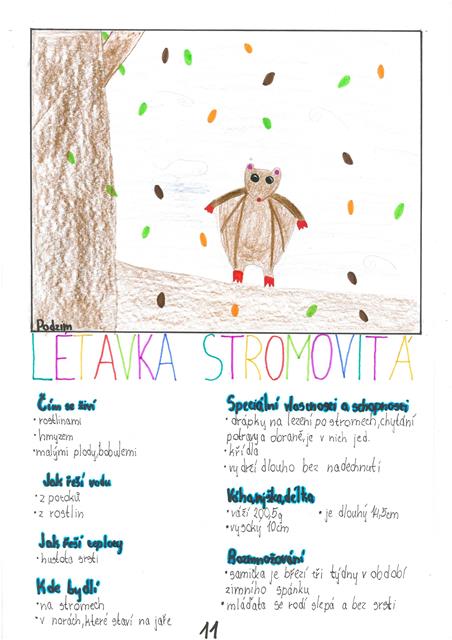 Podzim
LÉTAVKA STROMOVITÁ
Čím se živí
• rostlinami
• hmyzem
• malými plody, bobulemi
Jak řeší vodu
• z potoků
• z rostlin
Jak řeší teploty
• hustota srsti
Kde bydlí
• na stromech
• v norách, které staví na jaře
Speciální vlastnosti a schopnosti
• drápky na lezení po stromech, chytání
potravy a obraně, je v nich jed.
• křídla
• vydrží dlouho bez nadechnutí
Váha, výška, délka
• váží 200,5g • je dlouhý 14,5cm
• vysoký 10cm
Rozmnožování
• samička je březí tři týdny v období
zimního spánku
• mláďata se rodí slepá a bez srsti
11